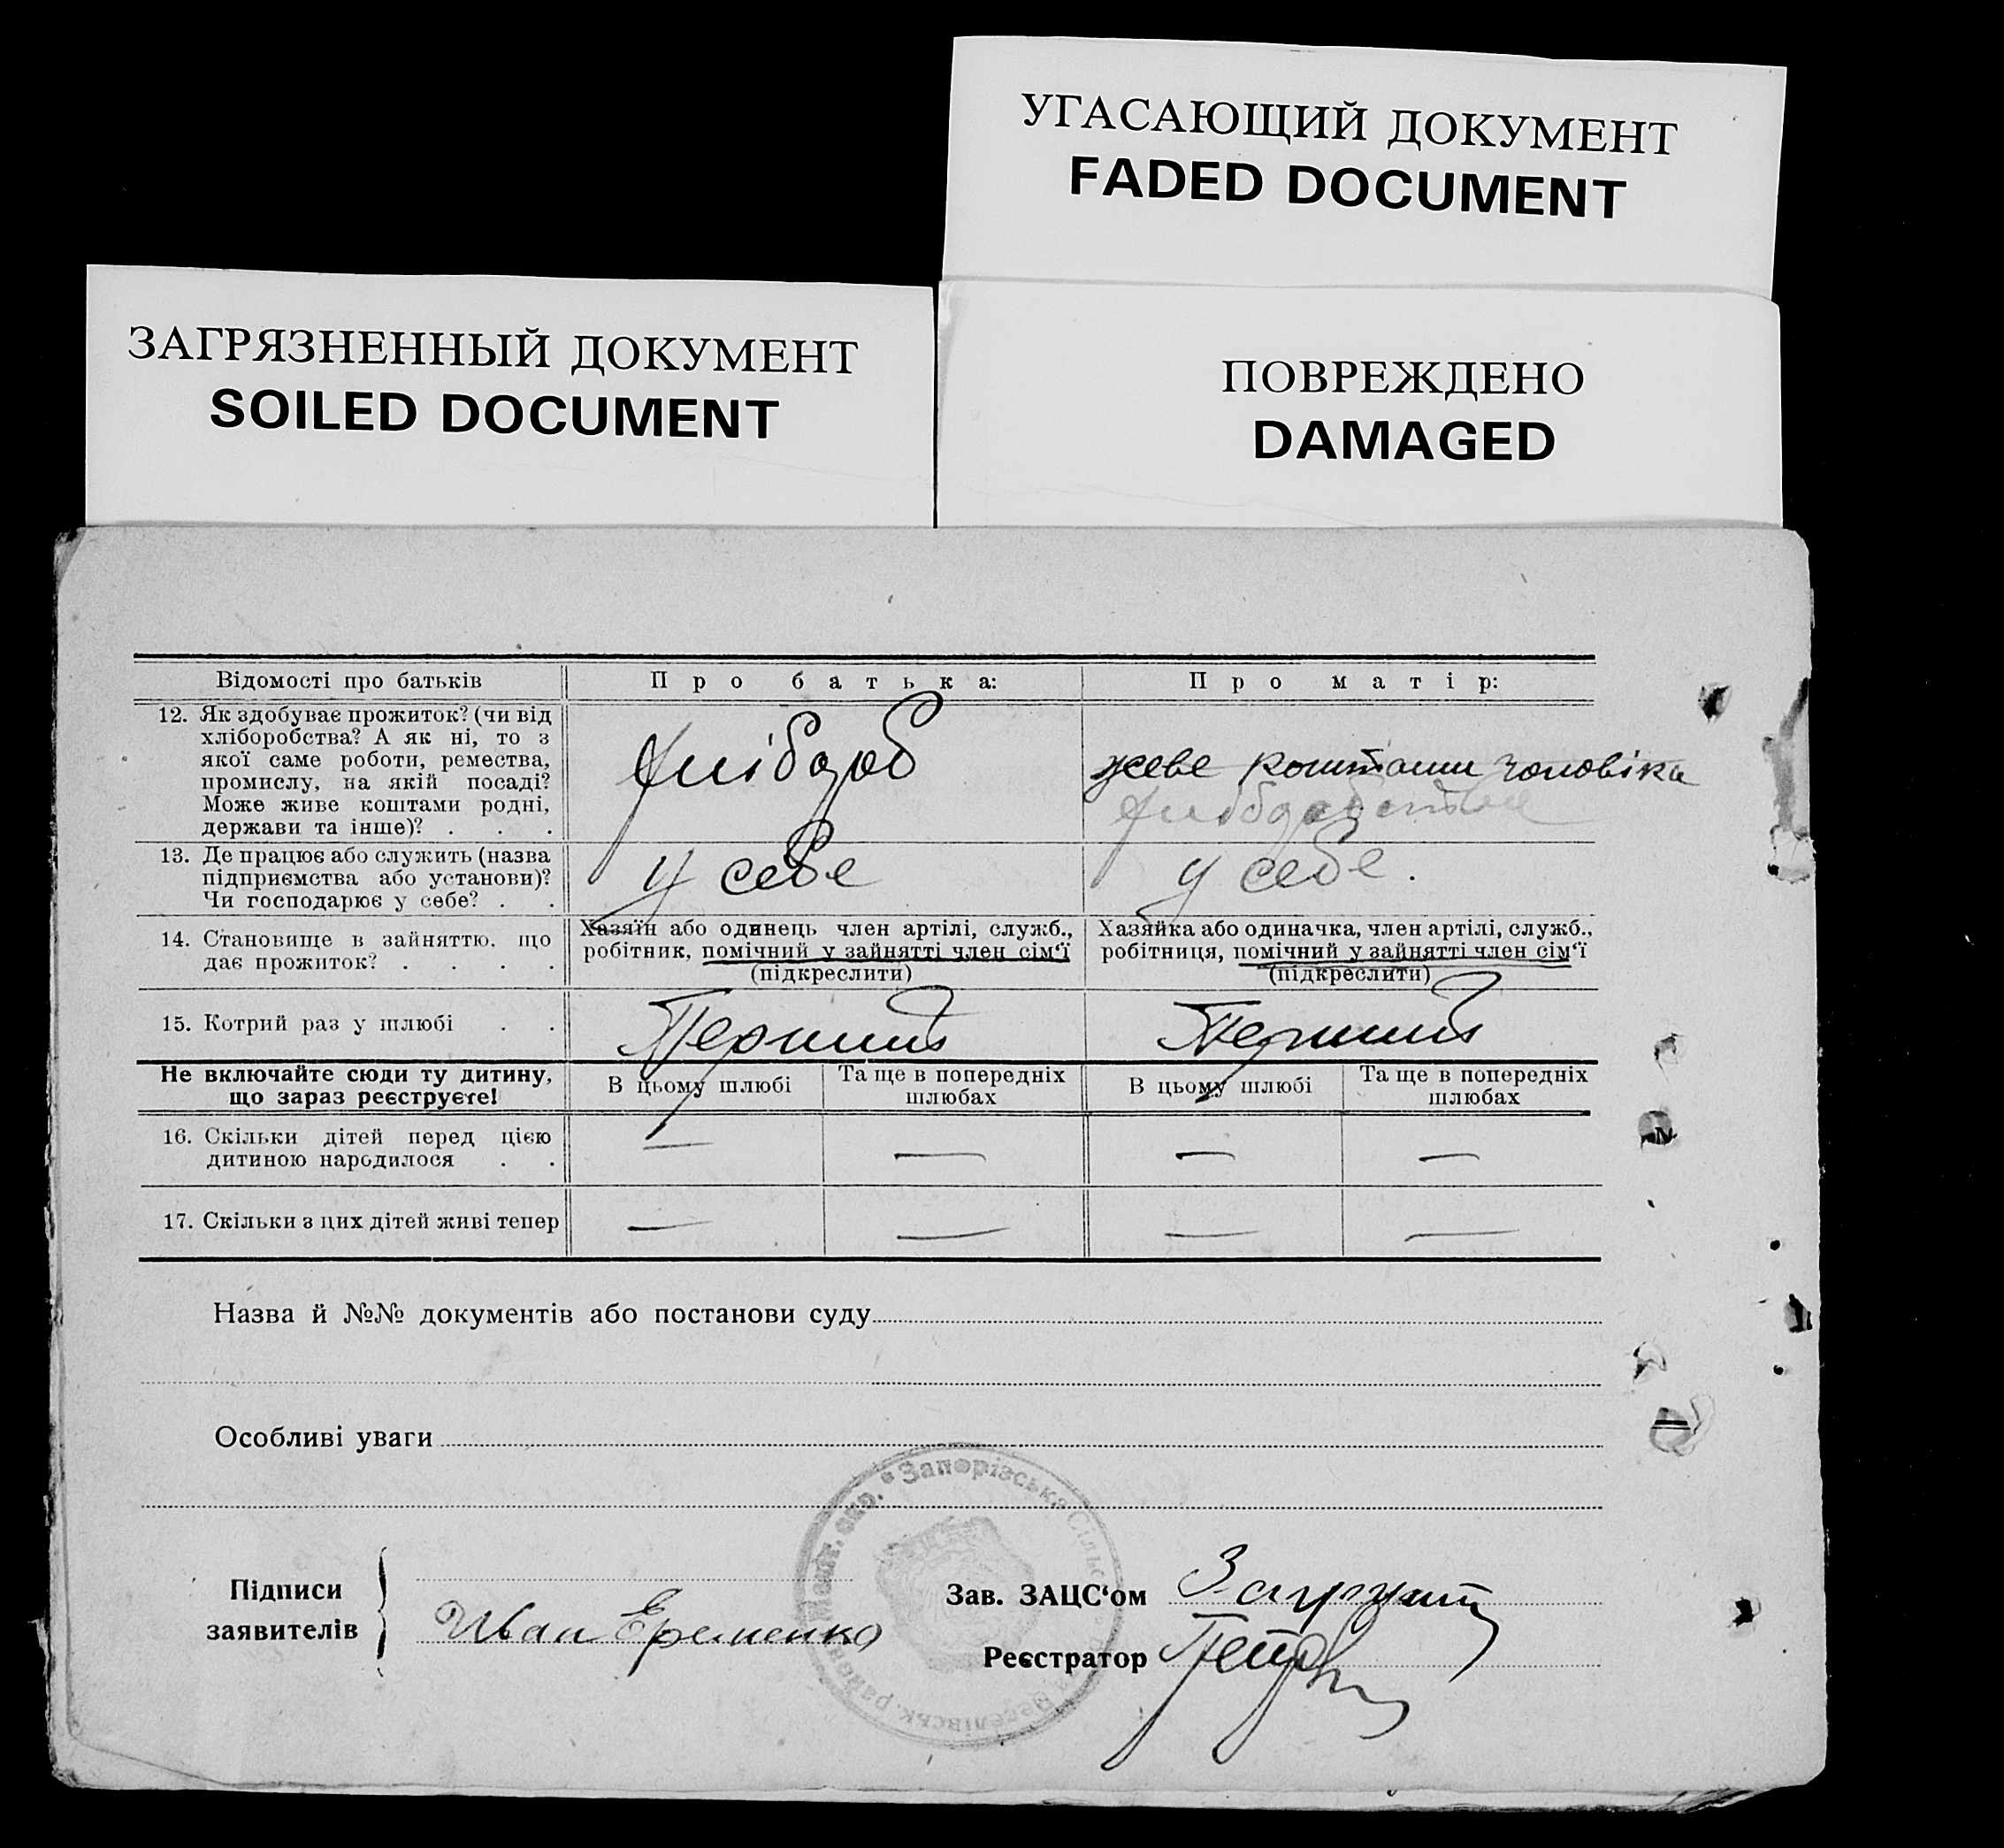 УГАСАЮЩИЙ ДОКУМЕНТ
FADED DOCUMENT
ЗАГРЯЗНЕННЫЙ ДОКУМЕНТ
SOILED DOCUMENT
ПОВРЕЖДЕНО
DAMAGED
Відомості про батьків
Про батька:
Про матір:
12. Як здобуває прожиток? (чи від
хліборобства? А як ні, то з
якої саме роботи, ремества,
промислу, на якій посаді?
Може живе коштами родні,
держави та інше)? . . .
Хлібороб
живе коштами чоловіка
13. Де працює або служить (назва
підприємства або установи)?
Чи господарює у себе? . .
у себе
у себе.
14. Становище в зайняттю, що
дає прожиток? . . . .
Хазяїн або одинець член артілі, служб.,
робітник, помічний у зайнятті член сім'ї
(підкреслити)
Хазяйка або одиначка, член артілі, служб.,
робітниця, помічний у зайнятті член сім'ї
(підкреслити)
15. Котрий раз у шлюбі . .
Перший
Перший
Не включайте сюди ту дитину,
що зараз реєструєте!
В цьому шлюбі
Та ще в попередніх
шлюбах
В цьому шлюбі
Та ще в попередніх
шлюбах
16. Скільки дітей перед цією
дитиною народилося . .
— — — —
17. Скільки з цих дітей живі тепер
— — — —
Назва й №№ документів або постанови суду
Особливі уваги
Запорізська Сільс
Підписи
заявителів
Иван Еременко
Зав. ЗАЦС'ом
Реєстратор